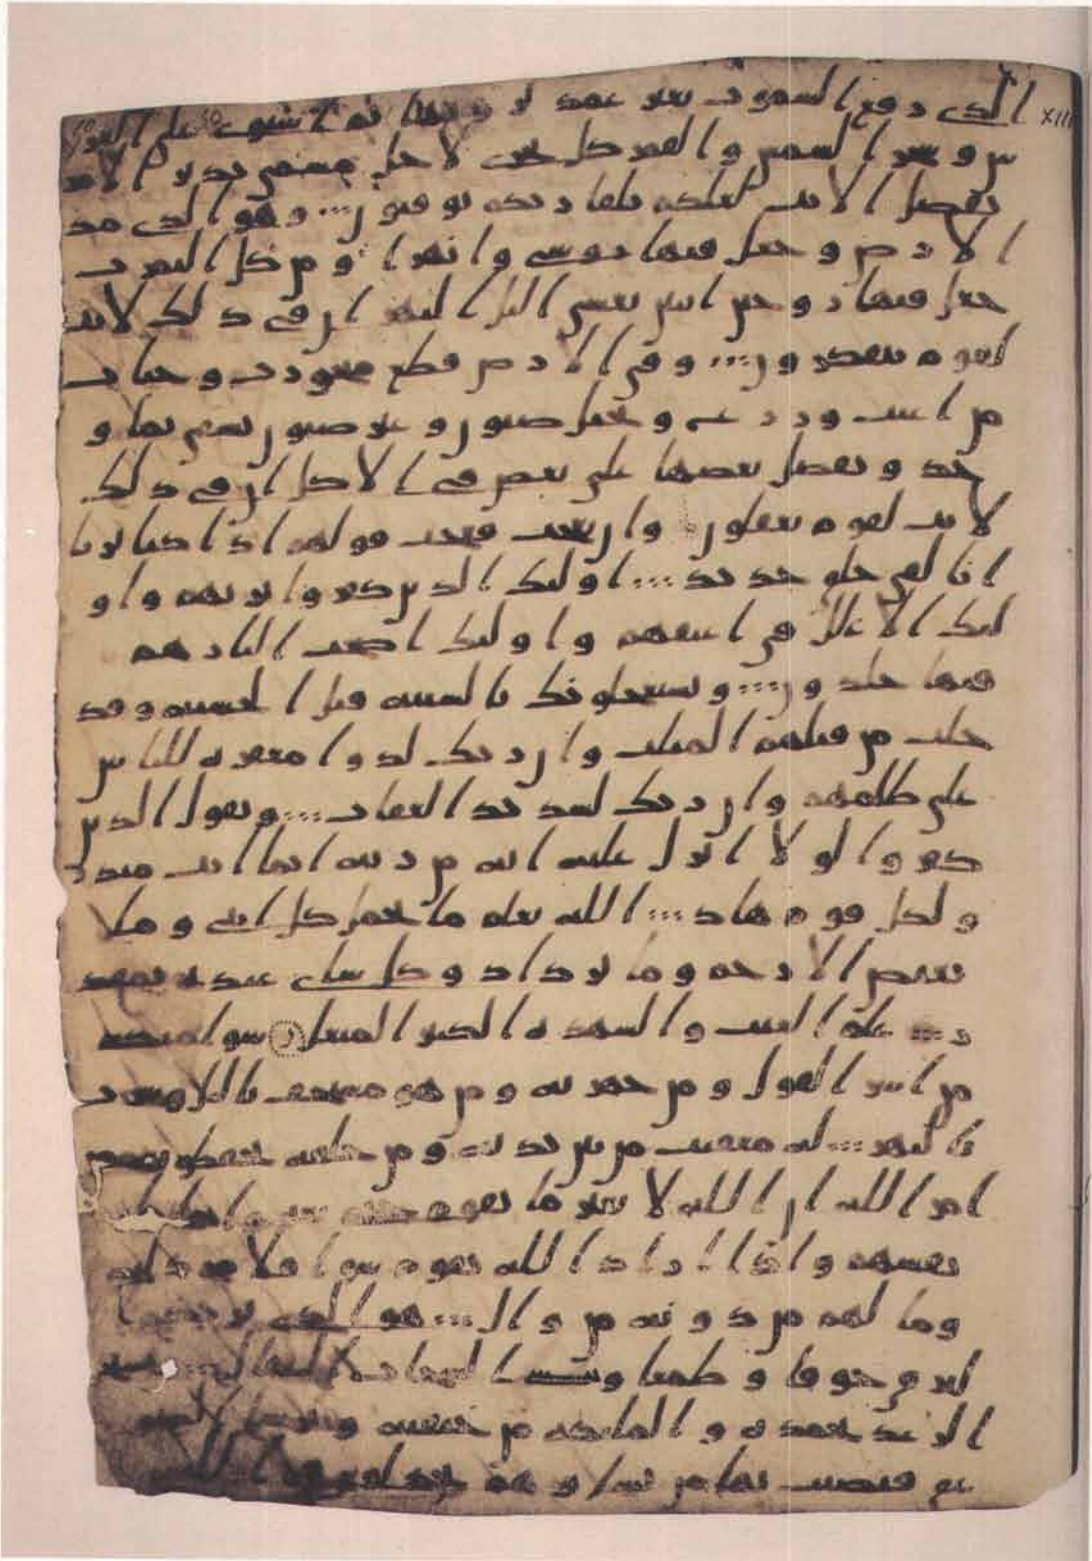 الذى رفع السموت بغير عمد ترونها ثم استوى على العر
ش وسخر الشمس والقمر كل يجرى لاجل مسمى يدبر الامر
يفصل الايت لعلكم بلقا ربكم توقنون وهو الذى مد
الارض وجعل فيها روسى وانهرا ومن كل الثمرت
جعل فيها زوجين اثنين يغشى اليل النهر ان فى ذلك لايت
لقوم يتفكرون وفى الارض قطع متجورت وجنات
من اعنب وزرع ونخيل صنون وغير صنون يسقى بما و
حد ونفضل بعضها على بعض فى الاكل ان فى ذلك
لايت لقوم يعقلون وان تعجب فعجب قولهم اذا كنا تربا
انا لفى خلق جديد اوليك الذين كفروا بربهم واو
ليك الاغلل فى اعنقهم واوليك اصحب النار هم
فيها خلدون ويستعجلونك بالسيئه قبل الحسنه وقد
خلت من قبلهم المثلت وان ربك لذوا مغفره للناس
على ظلمهم وان ربك لشديد العقاب ويقول الذين
كفروا لولا انزل عليه ايه من ربه انما انت منذر
ولكل قوم هاد الله يعلم ما تحمل كل انثى وما
تغيض الارحم وما تزداد وكل شاى عنده بمقد
ر علم الغيب والشهده الكبير المتعل سوا منكم
من اسر القول ومن جهر به ومن هو مستخف باليل وسرب
بالنهر له معقبت من بين يديه ومن خلفه يحفظونه من
امر الله ان الله لا يغير ما بقوم حتى
نفسهم واذا اراد الله بقوم سوا فلا مرد له
وما لهم من دونه من وال هو الذى يريكم ا
لبرق خوفا وطمعا وينشى السحاب الثقال ويسبح
الرعد بحمده والملئكه من خيفته ويرسل الصو
عق فيصيب بها من يشا وهم يجدلون فى الله
XIII